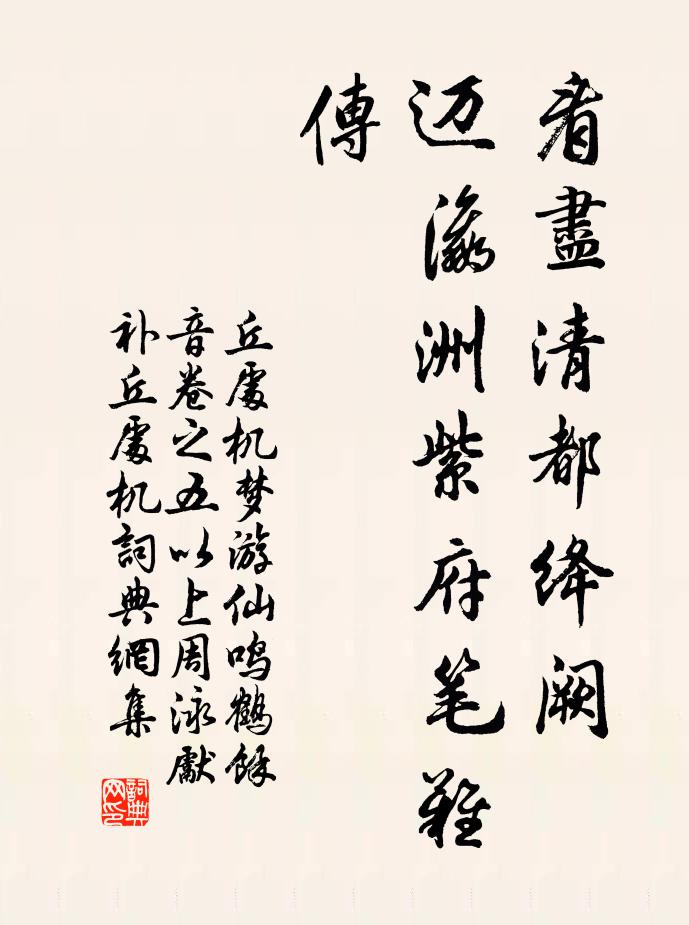 看盡清都絳阙
迈瀛洲紫府笔難
傳
丘處机梦游仙鸣鶴餘
音卷之五以上周泳獻
补丘處机詞典網集
詞典
网印